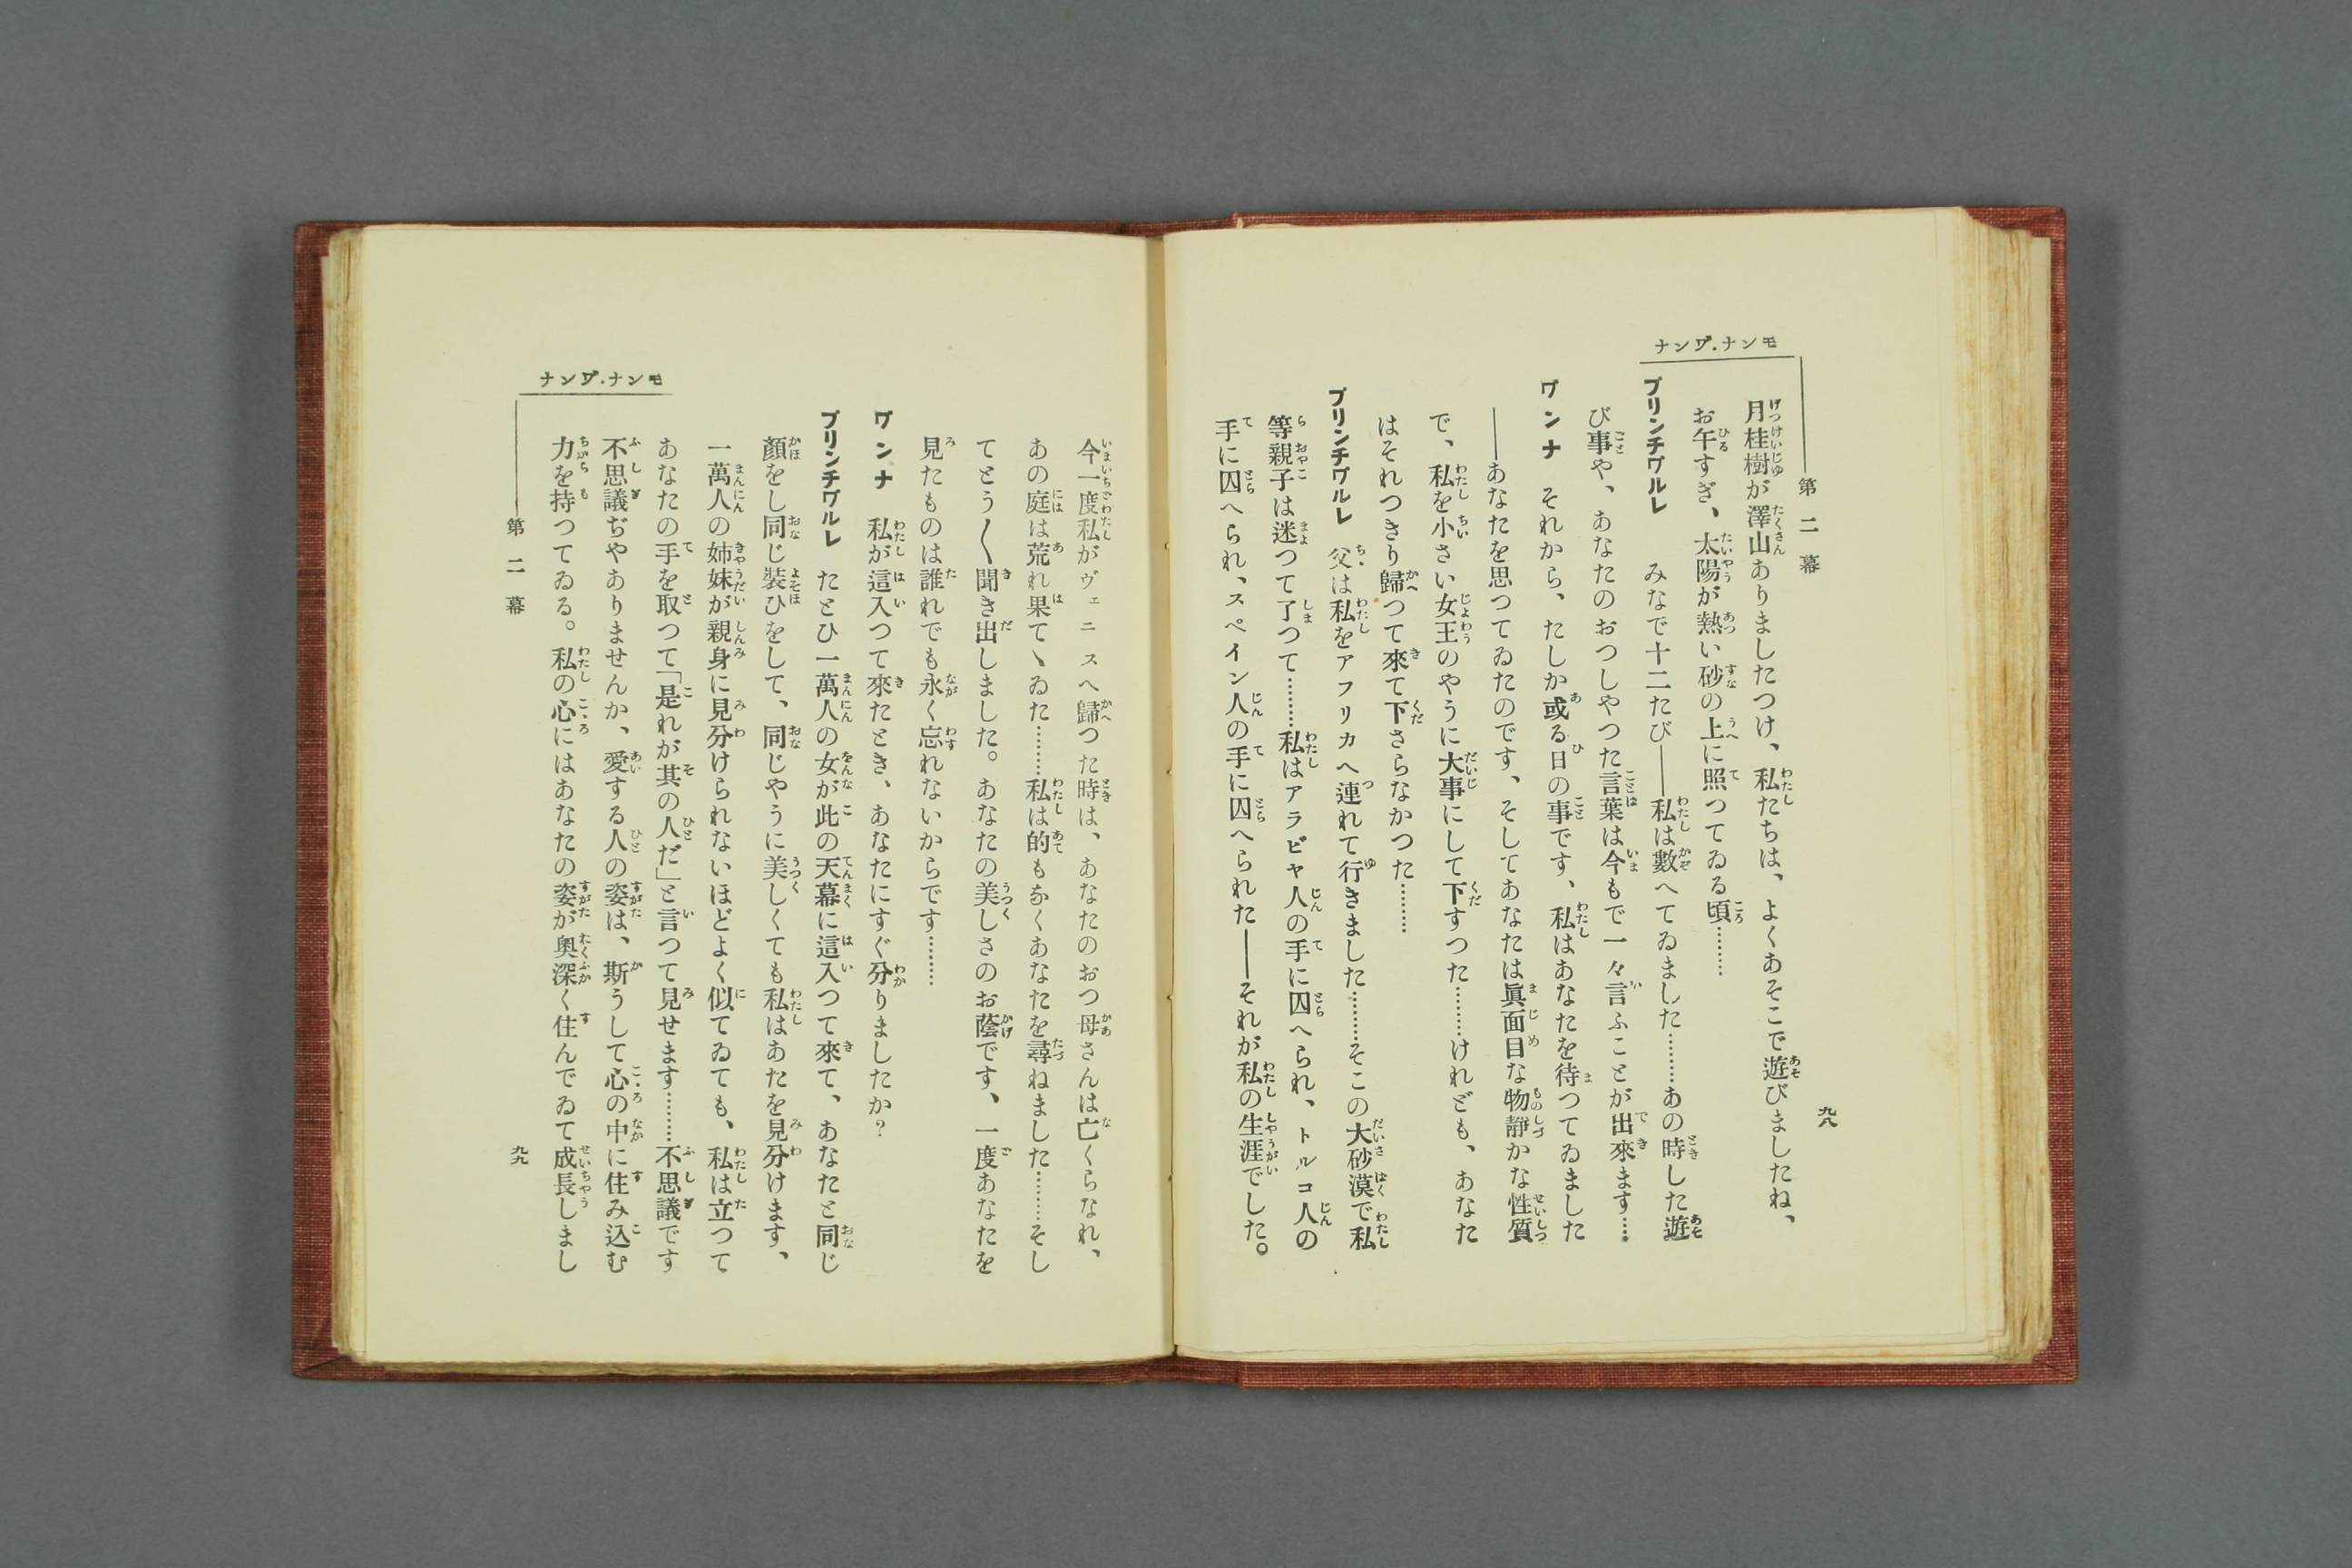 モンナ・ワ゛ンナ
第二幕
九八
月桂樹が澤山ありましたつけ、私たちは、よくあそこで遊びましたね、
お午すぎ、太陽が熱い砂の上に照つてゐる頃………
プリンチワ゛ルレ　みなで十二たび――私は數へてゐました………あの時した遊
び事や、あなたのおつしやつた言葉は今もで一々言ふことが出來ます…
ワ゛ンナ　それから、たしか或る日の事です、私はあなたを待つてゐました
――あなたを思つてゐたのです、そしてあなたは眞面目な物靜かな性質
で、私を小さい女王のやうに大事にして下すつた………けれども、あなた
はそれつきり歸つて來て下さらなかつた………
プリンチワ゛ルレ　父は私をアフリカへ連れて行きました………そこの大砂漠で私
等親子は迷つて了つて………私はアラビヤ人の手に囚へられ、トルコ人の
手に囚へられ、スペイン人の手に囚へられた――それが私の生涯でした。
モンナ・ワ゛ンナ
第二幕
九九
今一度私がヴェニスへ歸つた時は、あなたのおつ母さんは亡くらなれ、
あの庭は荒れ果てゝゐた………私は的もなくあなたを尋ねました………そし
てとう〱聞き出しました。あなたの美しさのお蔭です、一度あなたを
見たものは誰れでも永く忘れないからです………
ワ゛ンナ　私が這入つて來たとき、あなたにすぐ分りましたか?
プリンチワ゛ルレ　たとひ一萬人の女が此の天幕に這入つて來て、あなたと同じ
顏をし同じ裝ひをして、同じやうに美しくても私はあたを見分けます、
一萬人の姉妹が親身に見分けられないほどよく似てゐても、私は立つて
あなたの手を取つて「是れが其の人だ」と言つて見せます………不思議です
不思議ぢやありませんか、愛する人の姿は、斯うして心の中に住み込む
力を持つてゐる。私の心にはあなたの姿が奧深く住んでゐて成長しまし